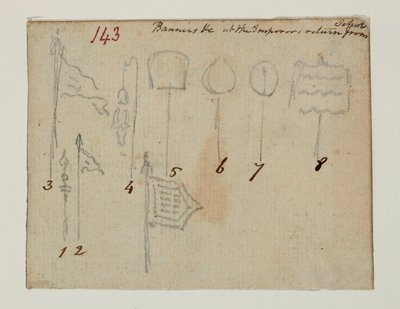 143
Banners &c at the Emperor, return from
3
4
5
6
7
8
1 2